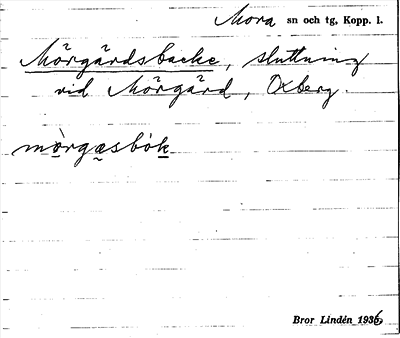 Mora sn och tg, Kopp. l.
Mårgårdsbacke, sluttning
vid Mårgård, Oxberg.
mòrgæsbók
Bror Lindén 1936